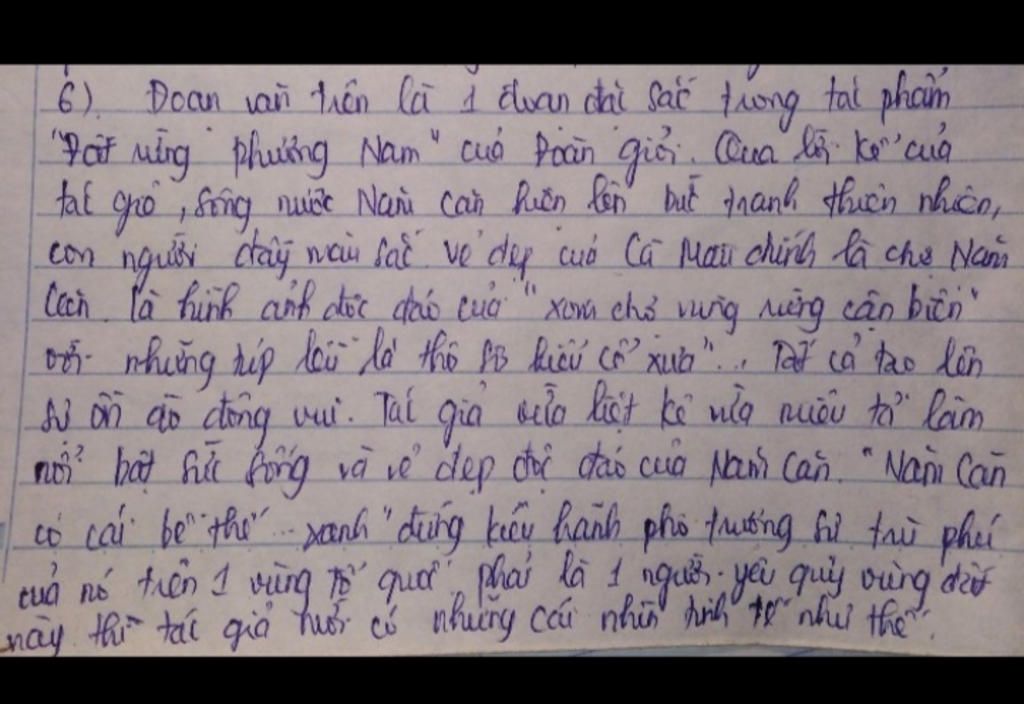 6) Đoạn văn trên là 1 đoạn đặc sắc trong tác phẩm
"Đất rừng phương Nam" của Đoàn giỏi. Qua lời kể của
tác giả, sông nước Năm căn hiện lên bức tranh thiên nhiên,
con người đầy màu sắc. vẻ đẹp của Cà Mau chính là chợ Năm
Căn. là hình ảnh độc đáo của "xóm chợ vùng rừng cận biển"
với những túp lều lá thô sơ kiểu cổ xưa"... Tất cả tạo lên
sự ồn ào đông vui. Tác giả vừa liệt kê vừa miêu tả làm
nổi bật sức sống và vẻ đẹp độc đáo của Năm Căn. "Năm Căn
có cái bề thế... xanh" đứng kiêu hãnh phô trương sự trù phú
của nó trên 1 vùng Tổ quốc. phải là 1 người yêu quý vùng đất
này thì tác giả mới có những cái nhìn tinh tế như thế.